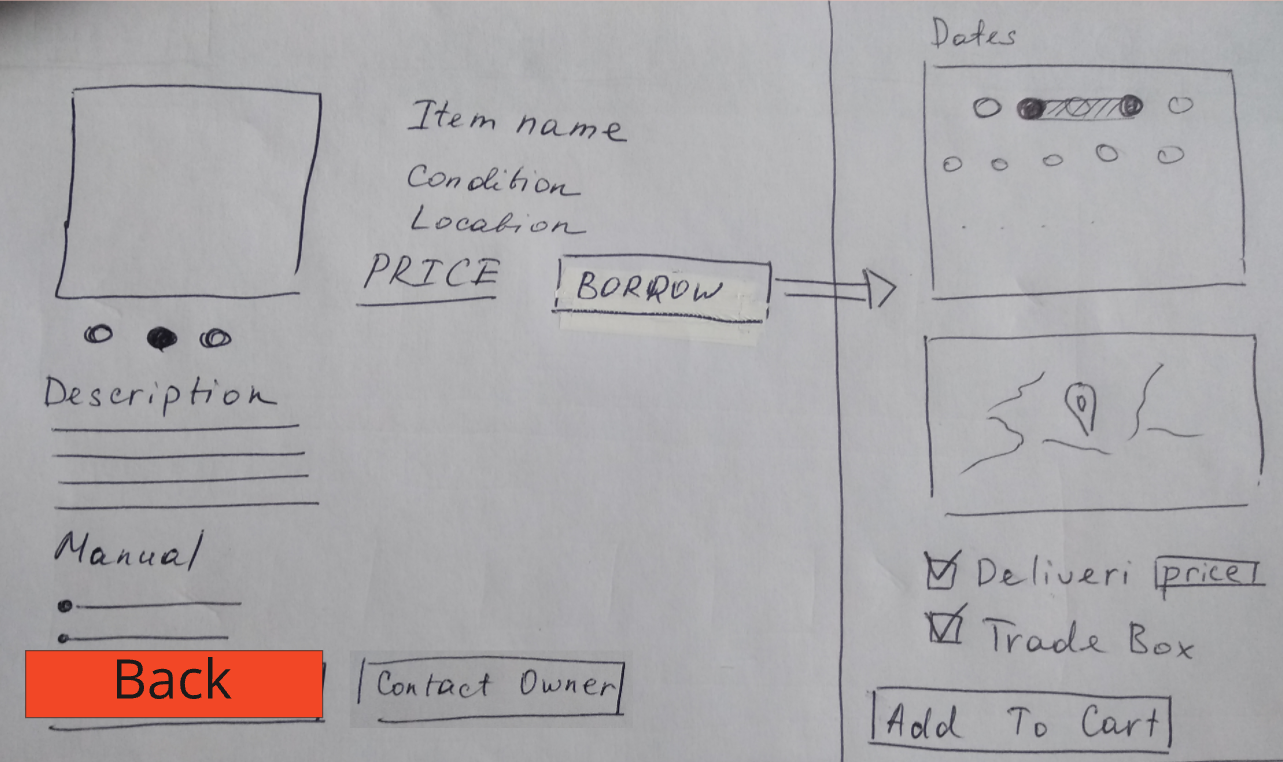 Item name
Condition
Location
PRICE
BORROW
Description
Manual
Back
Contact Owner
Dates
Deliveri price
Trade Box
Add To Cart